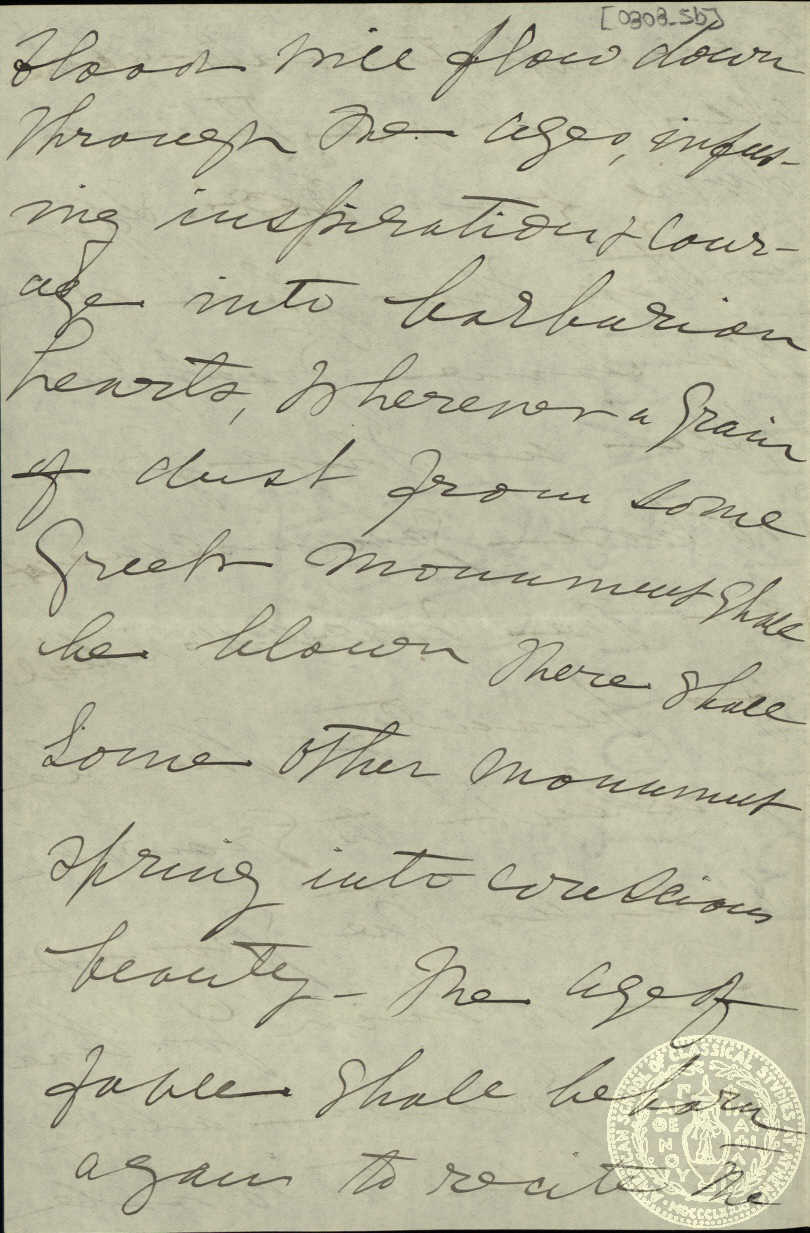 [0303_5b]
blood will flow down
through the ages, infus-
ing inspiration & cour-
age into barbarian
hearts, Wherever a grain
of dust from some
Greek monument shall
be blown there shall
Some other monument
spring into conscious
beauty - The age of
fable shall be born
again to recite the
AMERICAN SCHOOL OF CLASSICAL STUDIES AT ATHENS